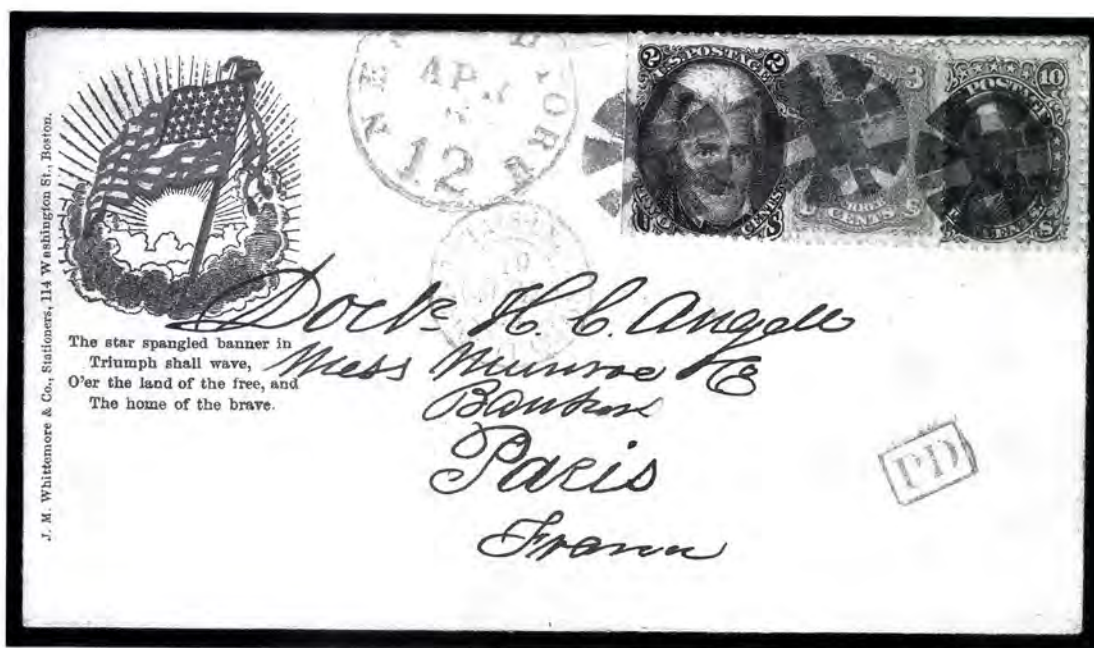 J. M. Whittemore & Co., Stationers, 114 Washington St., Boston.
The star spangled banner in
Triumph shall wave,
O'er the land of the free, and
The home of the brave.
NEW YORK
APR
12
2 U.S. POSTAGE 2
CENTS
3
CENTS
POSTAGE 10
CENTS
Dock H. C. Angell
Mess Munroe & Co
Bankers
Paris
France
PD